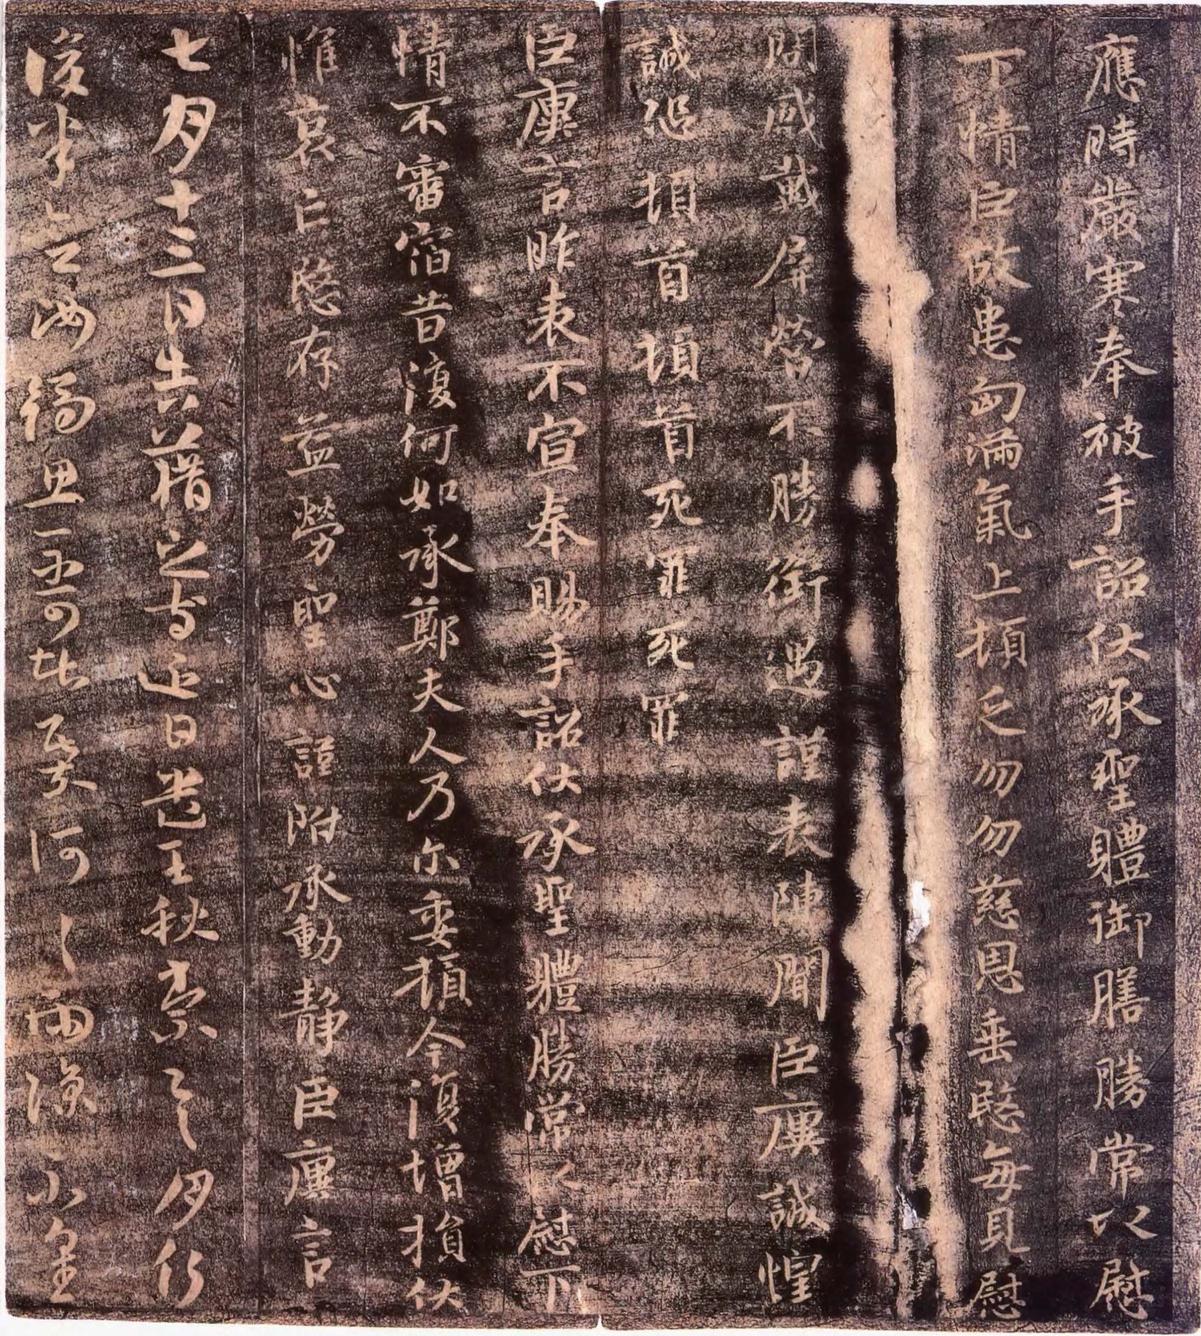 應時嚴寒奉被手詔伏承聖體御膳勝常以慰
下情臣故患匈滿氣上頓乏勿勿慈恩垂愍每見慰
問感戴屏營不勝銜遇謹表陳聞臣廙誠惶
誠恐頓首頓首死罪死罪
臣廙言昨表不宣奉賜手詔伏承聖體勝常以慰下
情不審宿昔復何如承鄭夫人乃尔委頓今復增損伏
惟哀亡愍存益勞聖心謹附承動靜臣廙言
七月十三日告藉之等近日遣王秋書月行
復半念汝獨思不可奈何奈何雨涼不審